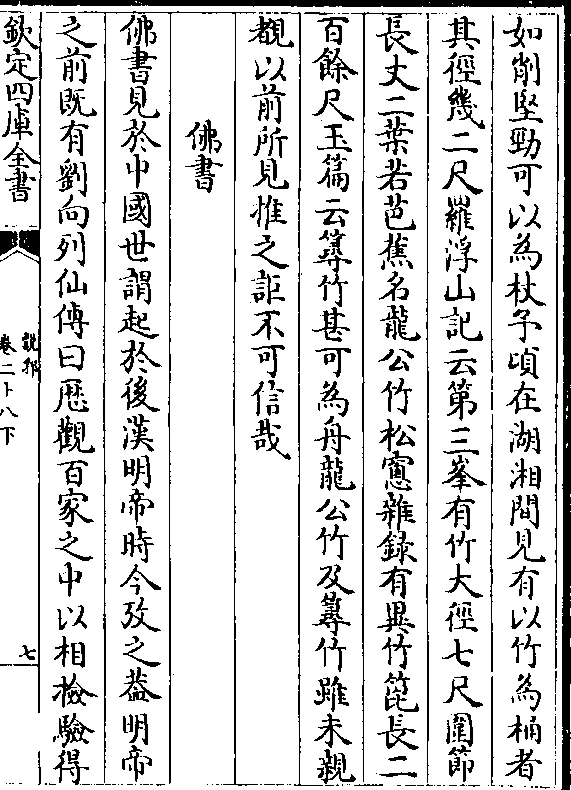 如削堅勁可以為杖予頃在湖湘間見有以竹為桶者
其徑幾二尺羅浮山記云第三峯有竹大徑七尺圍節
長丈二葉若芭蕉名龍公竹松窻雜録有異竹箆長二
百餘尺玉篇云䉡竹甚可為舟龍公竹及䉡竹雖未親
覩以前所見推之詎不可信哉
佛書
佛書見於中國世謂起於後漢明帝時今攷之葢明帝
之前既有劉向列仙傳曰厯觀百家之中以相檢驗得
欽定四庫全書
說郛
卷二十八下
七